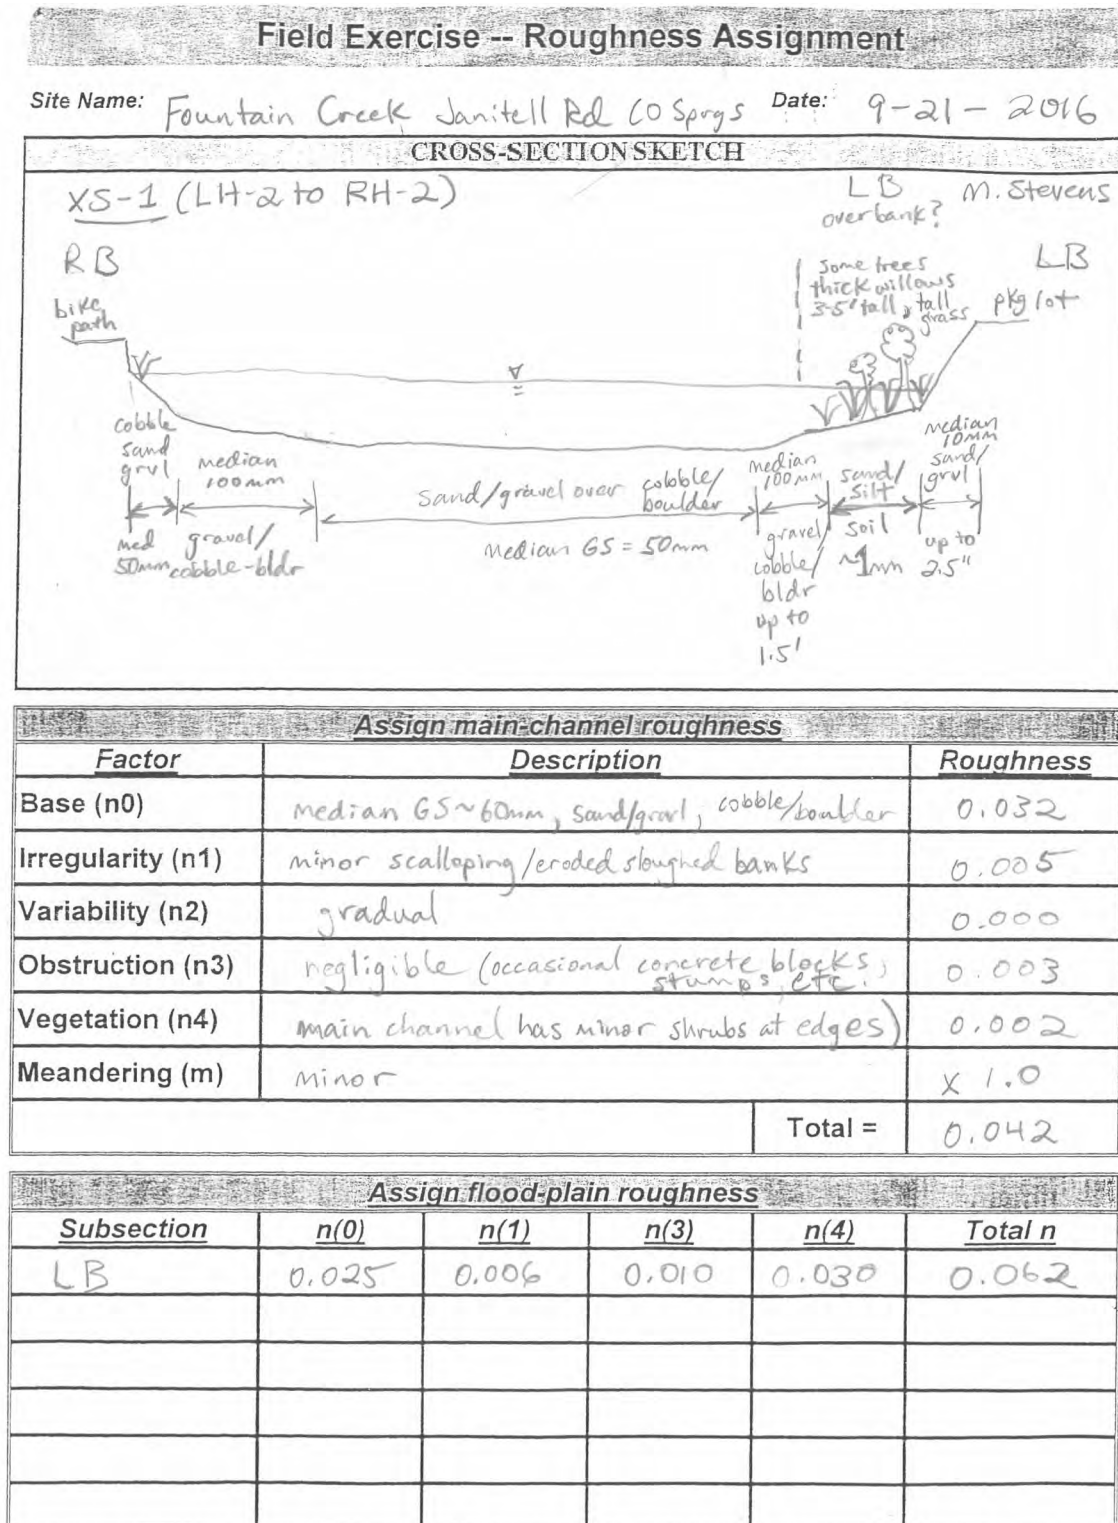 Field Exercise -- Roughness Assignment
Site Name: Fountain Creek Janitell Rd CO Sprgs Date: 9-21-2016
CROSS-SECTION SKETCH
XS-1 (LH-2 to RH-2)
LB
overbank?
M. Stevens
RB
LB
bike
path
some trees
thick willows
3-5' tall, tall
grass
pkg lot
cobble
sand
grvl
med
50mm
median
100mm
gravel/
cobble-bldr
sand/gravel over cobble/
boulder
Median GS = 50mm
median
100mm
gravel/
cobble/
bldr
up to
1.5'
sand/
silt
soil
~1mm
median
10mm
sand/
grvl
up to
2.5"
Assign main-channel roughness
Factor Description Roughness
Base (n0) median GS~60mm, sand/gravl, cobble/boulder 0.032
Irregularity (n1) minor scalloping/eroded sloughed banks 0.005
Variability (n2) gradual 0.000
Obstruction (n3) negligible (occasional concrete blocks, stumps, etc. 0.003
Vegetation (n4) main channel has minor shrubs at edges) 0.002
Meandering (m) minor x 1.0
Total = 0.042
Assign flood-plain roughness
Subsection n(0) n(1) n(3) n(4) Total n
LB 0.025 0.006 0.010 0.030 0.062